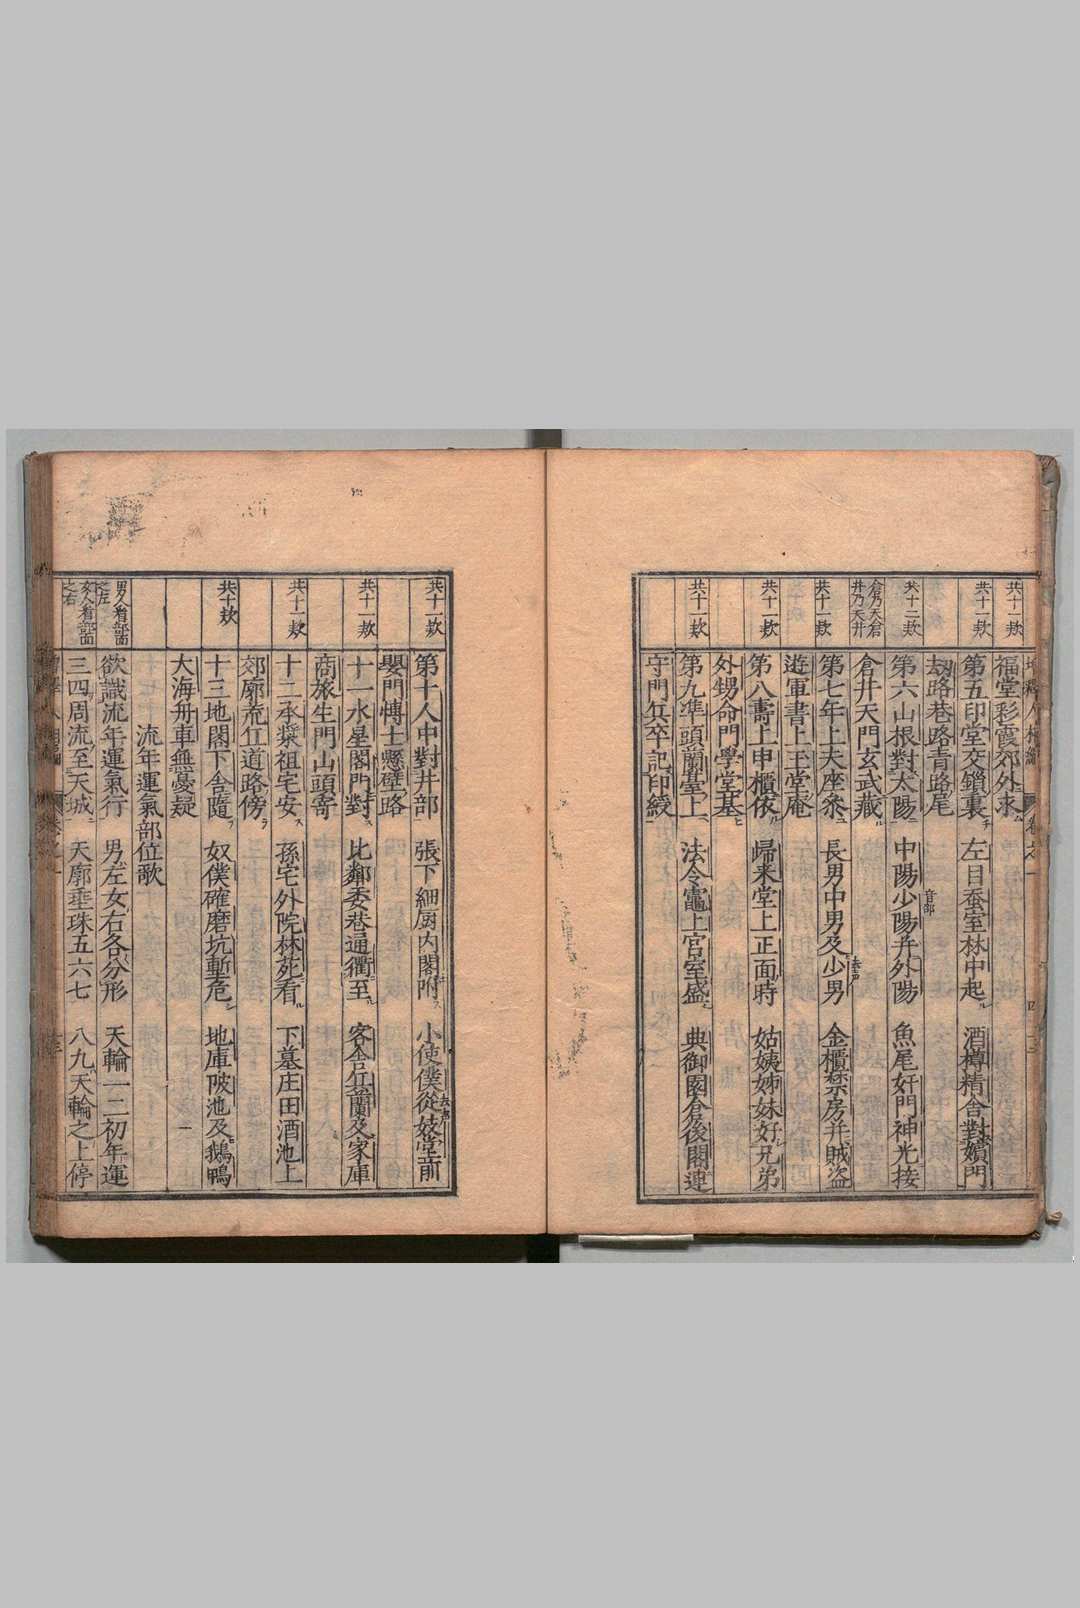 共十一欵
福堂彩霞郊外求
共十一欵
第五印堂交鎖裏 左目蚕室林中起 酒樽精舍對嬪門
劫路巷路青路尾
共十二欵
第六山根對太陽 中陽少陽并外陽 魚尾奸門神光接
倉乃天倉
井乃天井
倉井天門玄武藏
共十一欵
第七年上夫座叅 長男中男及少男 金櫃禁房并賊盜
遊軍書上玉堂庵
共十一欵
第八壽上甲櫃依 歸来堂上正面時 姑姨姊妹好兄弟
外甥命門學堂基
共十一欵
第九準頭蘭臺上 法令竈上宮室盛 典御園倉後閣連
守門兵卒記印綬
共十一欵
第十人中對井部 張下細厨内閣附 小使僕從妓堂前
嬰門愽士懸壁路
共十一欵
十一水星閣門對 比鄰委巷通衢至 客舎兵蘭及家庫
商旅生門山頭寄
共十一欵
十二承漿祖宅安 孫宅外院林苑看 下墓庄田酒池上
郊廓荒丘道路傍
共十欵
十三地閣下舎隨 奴僕碓磨坑塹危 地庫陂池及鵝鴨
大海舟車無憂疑
流年運氣部位歌
男人看部面
之左
欲識流年運氣行 男左女右各分形 天輪一二初年運
女人看部面
之右
三四周流至天城 天廓垂珠五六七 八九天輪之上停